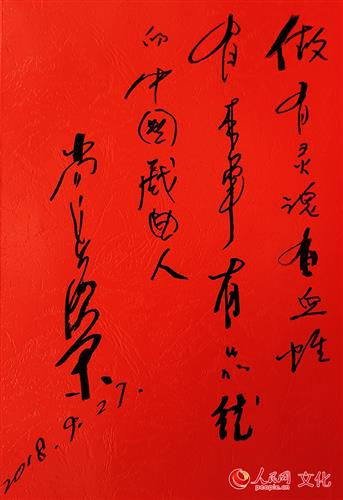 做有灵魂有血性
有本事有品德
的中國戲曲人
尚長榮
2018.9.27.
人民网 文化
people.cn